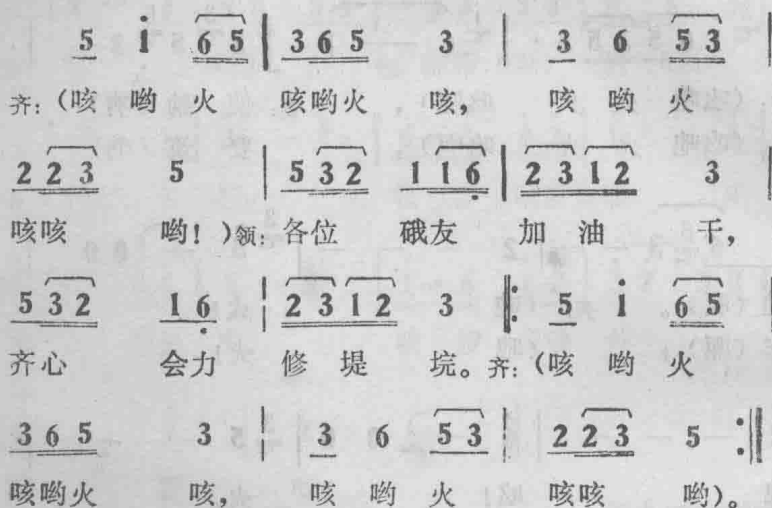 5 i 6 5 | 3 6 5 3 | 3 6 5 3 |
齐:(咳 哟 火 咳哟火 咳, 咳 哟 火
2 2 3 5 | 5 3 2 1 1 6 | 2 3 1 2 3 |
咳咳 哟!)领:各位 硪友 加 油 干,
5 3 2 1 6 | 2 3 1 2 3 |: 5 i 6 5 |
齐心 会力 修 堤 垸。齐:(咳 哟 火
3 6 5 3 | 3 6 5 3 | 2 2 3 5 :|
咳哟火 咳, 咳 哟 火 咳咳 哟)。